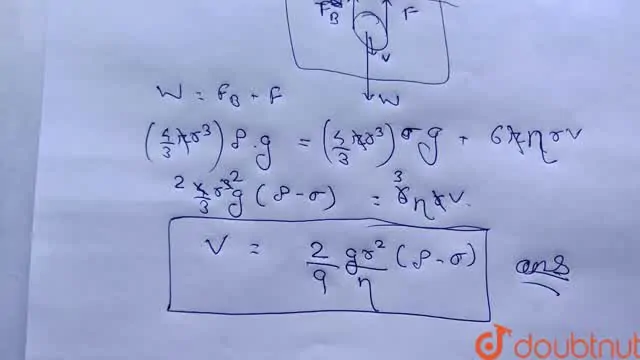 F_B F
v
W
W = F_B + F
(4/3 πr³) ρ.g = (4/3 πr³) σg + 6πηrv
2 4/3 r³ ² g (ρ-σ) = 3 6 η r v.
V = 2/9 gr²/η (ρ-σ) ans
doubtnut